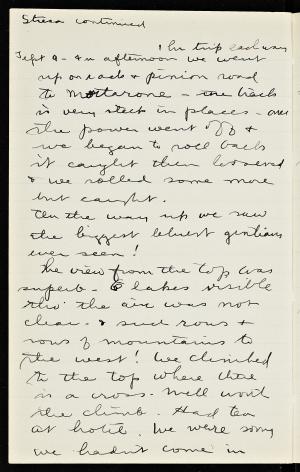 Stresa continued
1 hr trip each way
Sept 9 - In afternoon we went
up on rack & pinion road
to Mottarone - the track
is very steep in places - once
the power went off &
we began to roll back
it caught then loosened
& we rolled some more
but caught.
On the way up we saw
the biggest bluest gentians
ever seen!
The view from the top was
superb - 6 lakes visible
tho' the air was not
clear - & such rows &
rows of mountains to
the west! We climbed
to the top where there
is a cross. Well worth
the climb. Had tea
at hotel. We were sorry
we hadn't come in